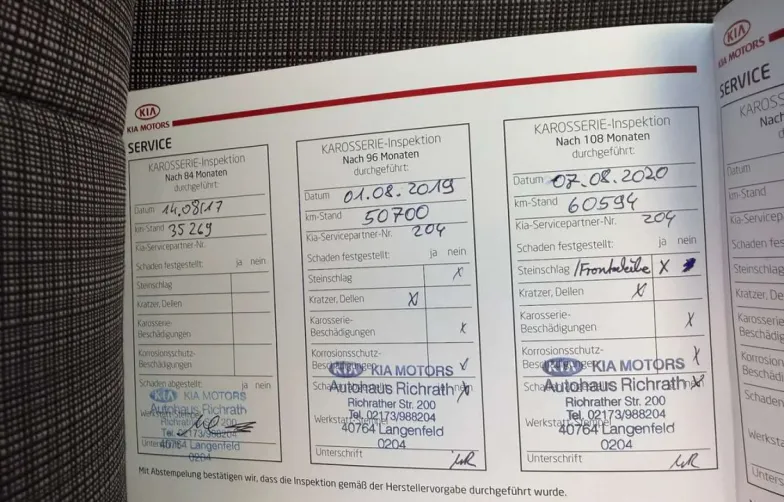 KIA
KIA MOTORS
SERVICE
KAROSSERIE-Inspektion
Nach 84 Monaten
durchgeführt:
Datum 14.08.17
km-Stand 35269
Kia-Servicepartner-Nr.
Schaden festgestellt: ja nein
Steinschlag
Kratzer, Dellen
Karosserie-
Beschädigungen
Korrosionsschutz-
Beschädigungen
Schaden abgestellt: ja nein
KIA MOTORS
Autohaus Richrath
Richrather Str. 200
Tel. 02173/988204
40764 Langenfeld
0204
KAROSSERIE-Inspektion
Nach 96 Monaten
durchgeführt:
Datum 01.08.2019
km-Stand 50700
Kia-Servicepartner-Nr. 204
Schaden festgestellt: ja nein
Steinschlag X
Kratzer, Dellen X
Karosserie-
Beschädigungen X
Korrosionsschutz-
KIA MOTORS
Autohaus Richrath
Richrather Str. 200
Tel. 02173/988204
40764 Langenfeld
0204
Unterschrift
KAROSSERIE-Inspektion
Nach 108 Monaten
durchgeführt:
Datum 07.08.2020
km-Stand 60594
Kia-Servicepartner-Nr. 204
Schaden festgestellt: ja nein
Steinschlag /Frontscheibe X
Kratzer, Dellen X
Karosserie-
Beschädigungen X
Korrosionsschutz- X
KIA MOTORS
Autohaus Richrath
Richrather Str. 200
Tel. 02173/988204
40764 Langenfeld
0204
Unterschrift
Mit Abstempelung bestätigen wir, dass die Inspektion gemäß der Herstellervorgabe durchgeführt wurde.
KIA
KIA MOTORS
SERVICE
Nach
Datum
km-Stand
Kia-Servicep
Schaden fest
Steinschlag
Kratzer, Delle
Karosserie-
Beschädig
Korrosion
Beschädi
Schaden